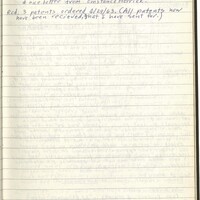 letter from Constance
Rcd. 3 patents ordered 2/20/63. (All patents now
have been recieved that I have sent for.)